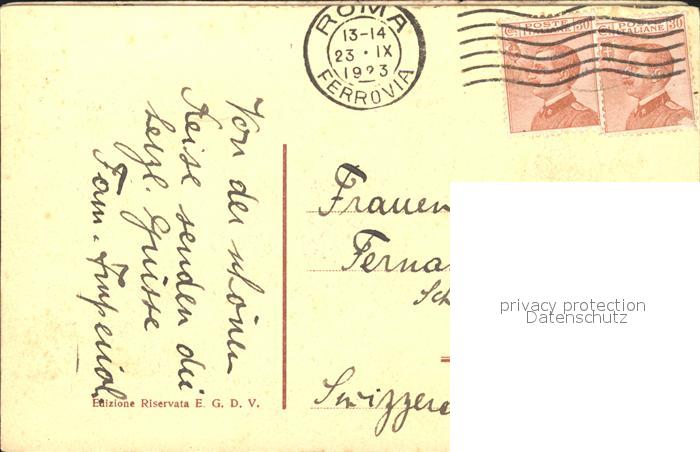 ROMA
13-14
23 · IX
1923
FERROVIA
POSTE
ITALIANE 30
POSTE
ITALIANE 30
Von der schönen
Reise senden die
herzl. Grüsse
Fam.
Frauen
Ferna
Sch
Svizzera
Edizione Riservata E. G. D. V.
privacy protection
Datenschutz